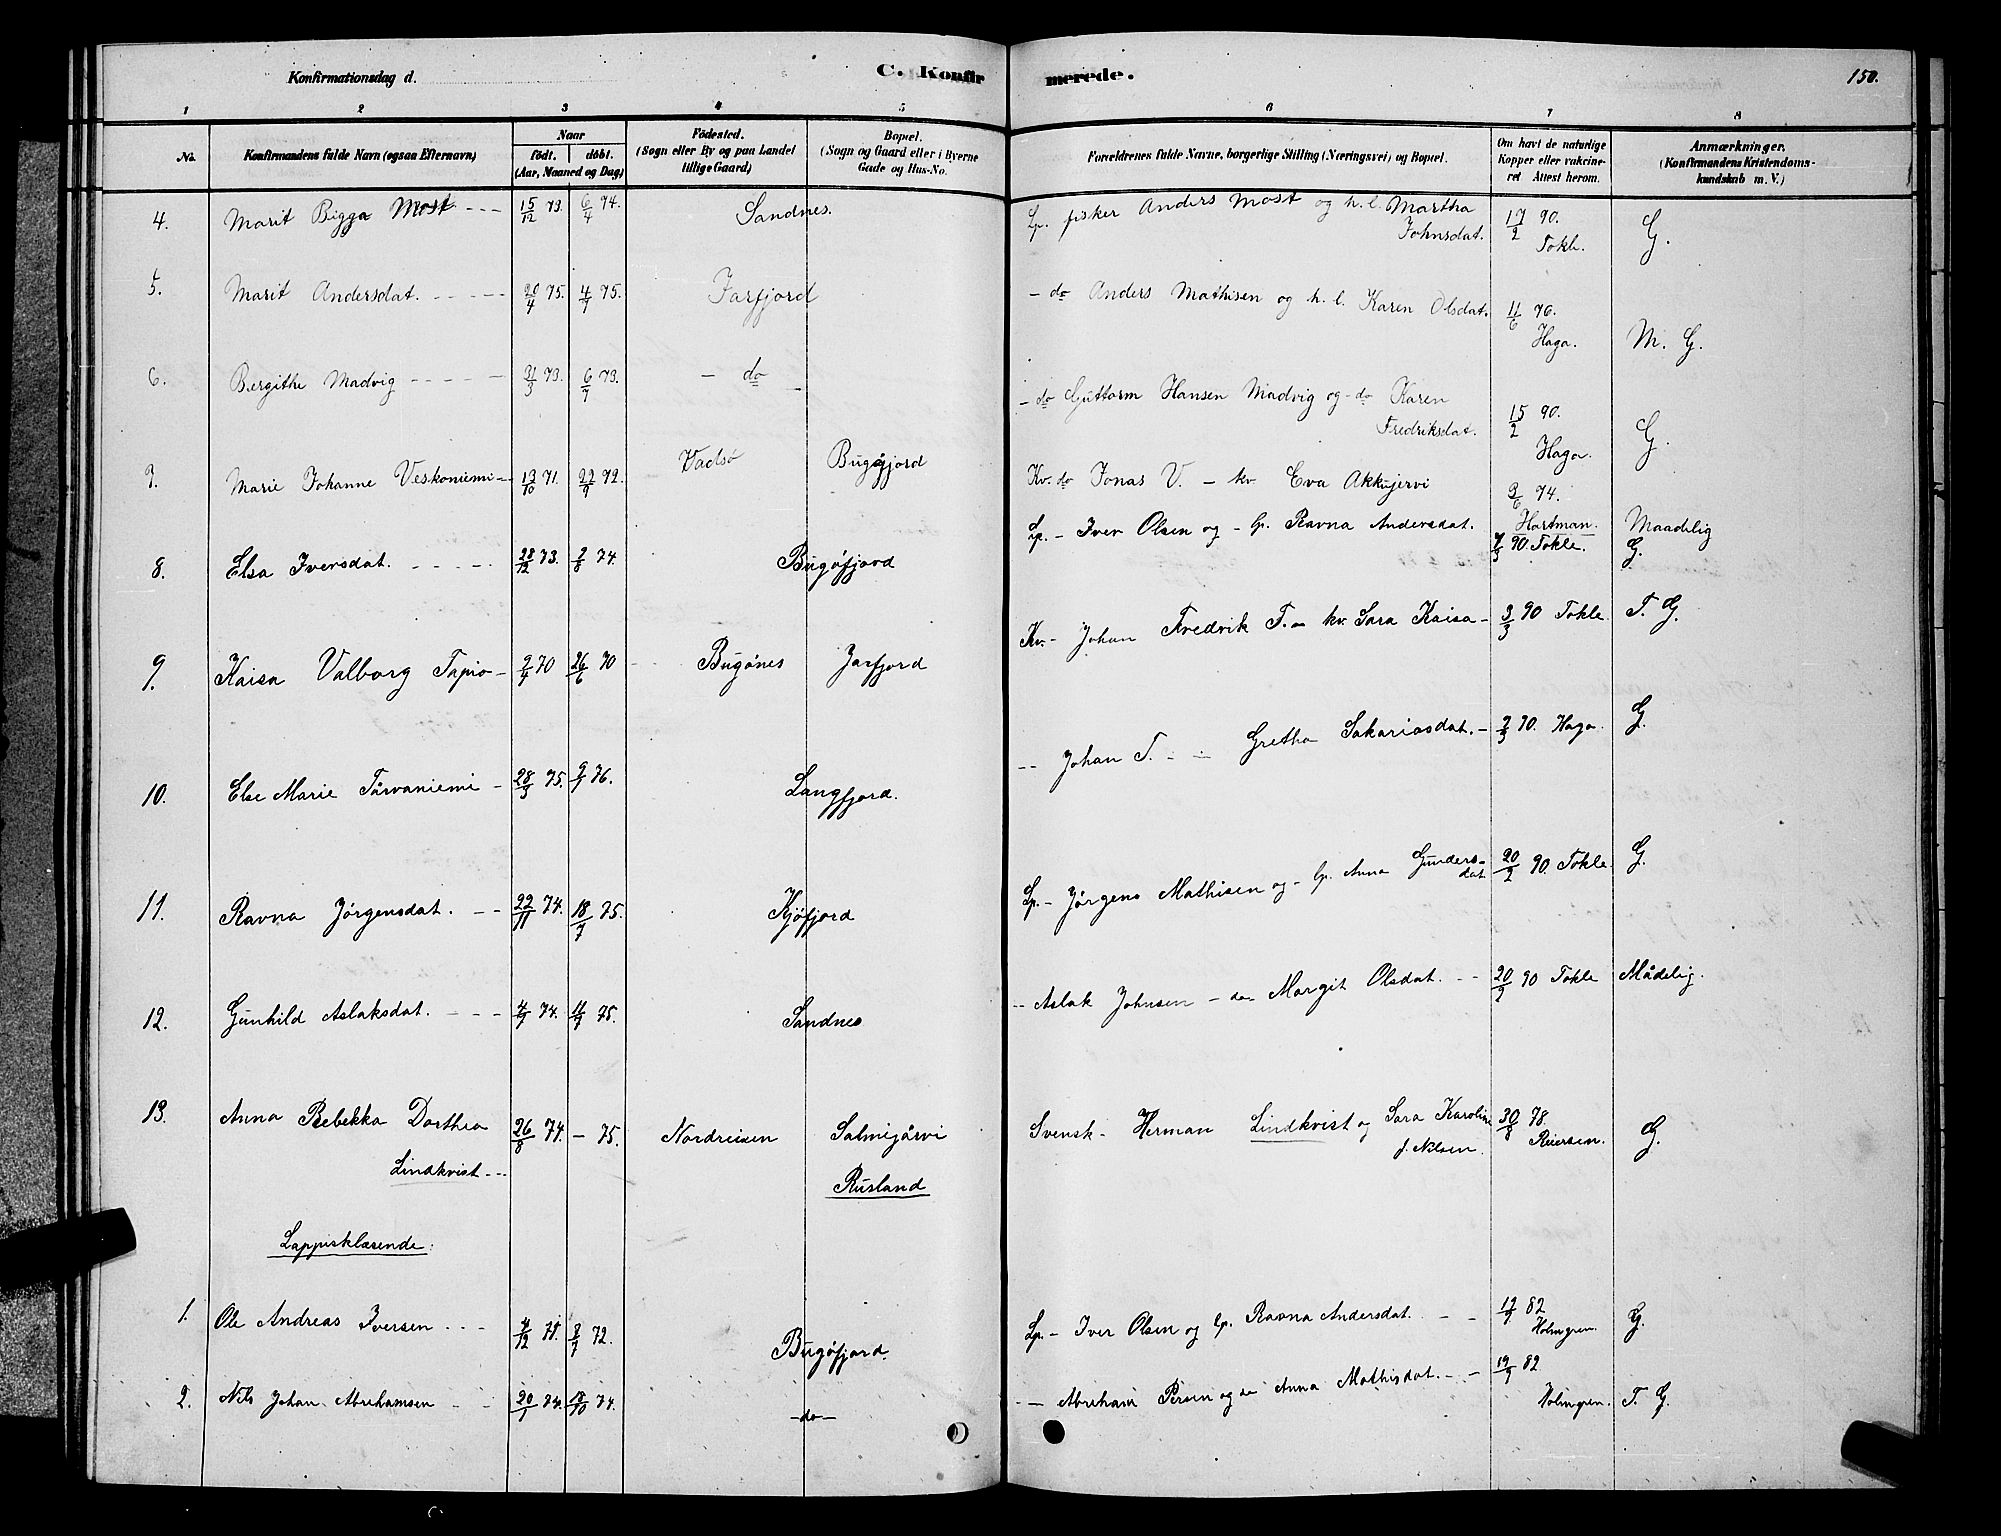 Konfirmationsdag d.
C. Konfir
merede.
150.
1 2 3 4 5 6 7 8
No.
Konfirmandens fulde Navn (ogsaa Efternavn)
Naar
født. døbt.
(Aar, Maaned og Dag)
Fødested.
(Sogn eller By og paa Landet
tillige Gaard)
Bopæl.
(Sogn og Gaard eller i Byerne
Gade og Hus-No.
Forældrenes fulde Navne, borgerlige Stilling (Næringsvei) og Bopæl.
Om havt de naturlige
Kopper eller vakcine-
ret Attest herom.
Anmærkninger.
(Konfirmandens Kristendoms-
kundskab m. V.)
4. Marit Bigga Most --- 15/12 73. 6/4 74. Sandnes. Lp. fisker Anders Most og h. l. Martha
Johnsdat. 17/2 90.
Tokle. G.
5. Marit Andersdat. ----- 20/4 75. 4/7 75. Jarfjord - do Anders Mathisen og h. l. Karen Olsdat. 11/6 76.
Haga. M. G.
6. Bergithe Madvig ---- 31/3 73. 6/7 73. - do - - do Guttorm Hansen Madvig og - do Karen
Fredriksdat. 15/2 90.
Haga. G.
7. Marie Johanne Veskoniemi - 13/10 71. 22/9 72. Vadsö Bugøfjord Kv. do Jonas V. - kv. Eva Akkujervi 3/6 74.
Hartman. Maadelig
8. Elsa Iversdat. ----- 28/12 73. 2/8 74. Bugøfjord Lp. - Iver Olsen og - lp. Ravna Andersdat. 7/3 90. Tokle. G.
9. Kaisa Valborg Tapio - 2/4 70 26/6 70 Bugönes Jarfjord Kv. - Johan Fredrik T. - kv. Sara Kaisa - 3/3 90 Tokle T. G.
10. Else Marie Törvaniemi - 28/3 75. 9/7 76. Langfjord. -- Johan T. - - Gretha Sakariasdat. - 2/3 90. Haga. G.
11. Ravna Jörgensdat. -- 22/11 74. 18/7 75. Kjøfjord Lp. - Jörgens Mathisen og - lp. Anna Gunders-
dat 20/2 90. Tokle G.
12. Gunhild Aslaksdat. --- 4/7 74. 11/7 75. Sandnes -- Aslak Johnsen - do Margit Olsdat. -- 20/2 90 Tokle Mådelig.
13. Anna Rebekka Dorthea
Lindkvist --- 26/8 74. - 75. Nordreisen Salmijärvi
Rusland Svensk - Herman Lindkvist og Sara Karoline
f. Nilsen 30/8 78.
Reiersen. G.
Lappisklæsende:
1. Ole Andreas Iversen --- 4/12 71. 8/7 72. Bugøfjord. Lp. - Iver Olsen og lp. Ravna Andersdat. -- 19/7 82
Holmgren. G.
2. Nils Johan Abrahamsen -- 20/1 74. 18/10 74. - do - -- Abraham Persen og do Anna Mathisdat. -- 19/7 82
Holmgren. T. G.